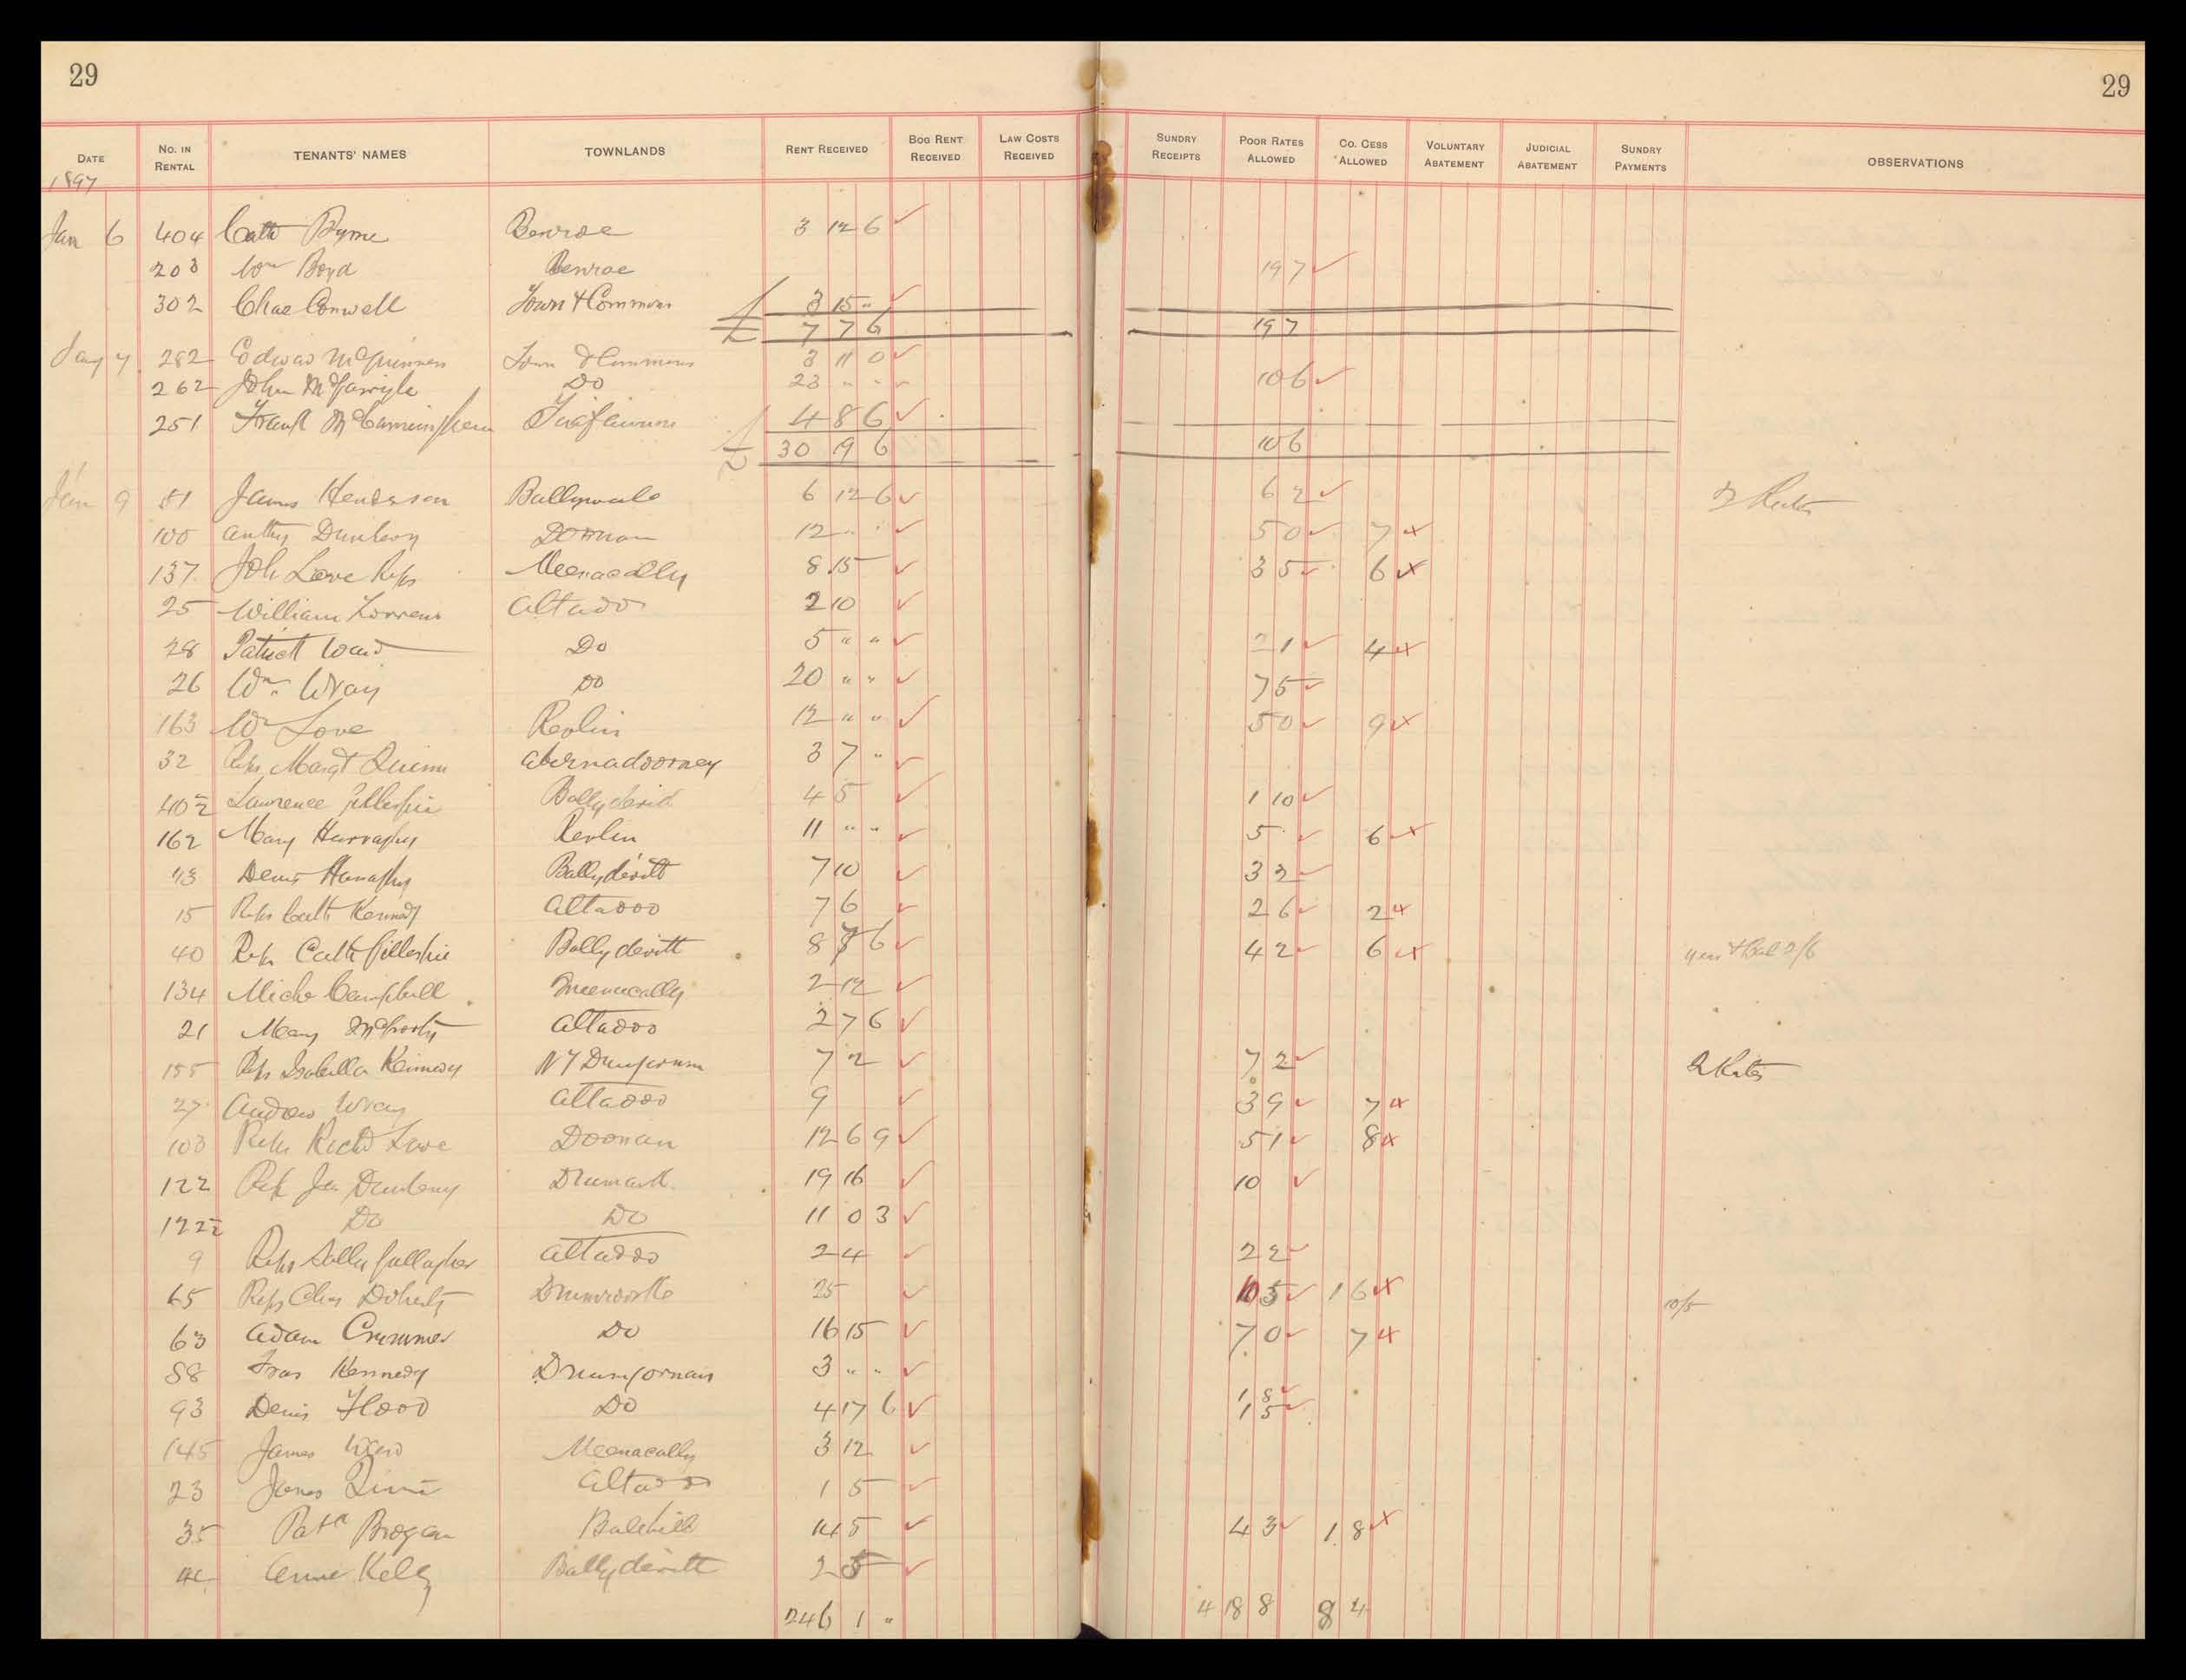 29
29
DATE No. IN RENTAL TENANTS' NAMES TOWNLANDS RENT RECEIVED BOG RENT RECEIVED LAW COSTS RECEIVED SUNDRY RECEIPTS POOR RATES ALLOWED CO. CESS ALLOWED VOLUNTARY ABATEMENT JUDICIAL ABATEMENT SUNDRY PAYMENTS OBSERVATIONS
1897
Jan 6 404 Cath Byrne Benroe 3 12 6 ✓
203 Wm Boyd Benroe 19 7 ✓
302 Chas Conwell Town & Commons 3 15 " ✓
£ 7 7 6 19 7
Jany 7 282 Edward McGuinness Town & Commons 3 11 0 ✓
262 John McGarrigle Do 23 " " 10 6 ✓
251 Frank 4 8 6 ✓
£ 30 19 6 10 6
Jan 9 51 James Henderson 6 12 6 ✓ 6 2 ✓ 2 Rates
100 Anthy Dunleavy Doonan 12 " " ✓ 5 0 ✓ 7 ×
137 Joh Love Reps Meenacally 8 15 ✓ 3 5 ✓ 6 ×
25 William Altadoo 2 10 ✓
28 Patrick Ward Do 5 " " ✓ 2 1 ✓ 4 ×
26 Wm. Wray Do 20 " " ✓ 7 5 ✓
163 Wm Love Revlin 12 " " ✓ 5 0 ✓ 9 ×
32 Reps Margt Quinn 3 7 " ✓
40½ Lawrence Gillespie Ballydevitt 4 5 ✓ 1 10 ✓
162 Mary Harraghy Revlin 11 " " ✓ 5 ✓ 6 ×
43 Denis Harraghy Ballydevitt 7 10 ✓ 3 2 ✓
15 Reps Cath Kennedy Altadoo 7 6 ✓ 2 6 ✓ 2 ×
40 Reps Cath Gillespie Ballydevitt 8 7 6 ✓ 4 2 ✓ 6 × year & Bal 2/6
134 Michl Campbell Meenacally 2 12 ✓
21 Mary McGroarty Altadoo 2 7 6 ✓
155 Reps Isabella Kennedy 7 2 ✓ 7 2 ✓ 2 Rates
27 Andrew Wray Altadoo 9 ✓ 3 9 ✓ 7 ×
103 Reps Richd Love Doonan 12 6 9 ✓ 5 1 ✓ 8 ×
122 Reps Jas Dunleavy Drumark 19 16 ✓ 10 ✓
122½ Do Do 11 0 3 ✓
9 Reps Sally Gallagher Altadoo 2 4 ✓ 2 2 ✓
65 Reps Chas Doherty 25 ✓ 10 5 ✓ 1 6 × 10/5
63 Adam Crummer Do 16 15 ✓ 7 0 ✓ 7 ×
88 Fras Kennedy Drumgornan 3 " " ✓
93 Denis Flood Do 4 17 6 ✓ 1 8 ✓
1 5 ✓
145 James Ward Meenacally 3 12 ✓
23 James Quinn Altadoo 1 5 ✓
35 Patk Brogan 14 5 ✓ 4 3 ✓ 1 8 ×
Anne Kelly Ballydevitt 2 5 ✓
246 1 " 4 18 8 8 4